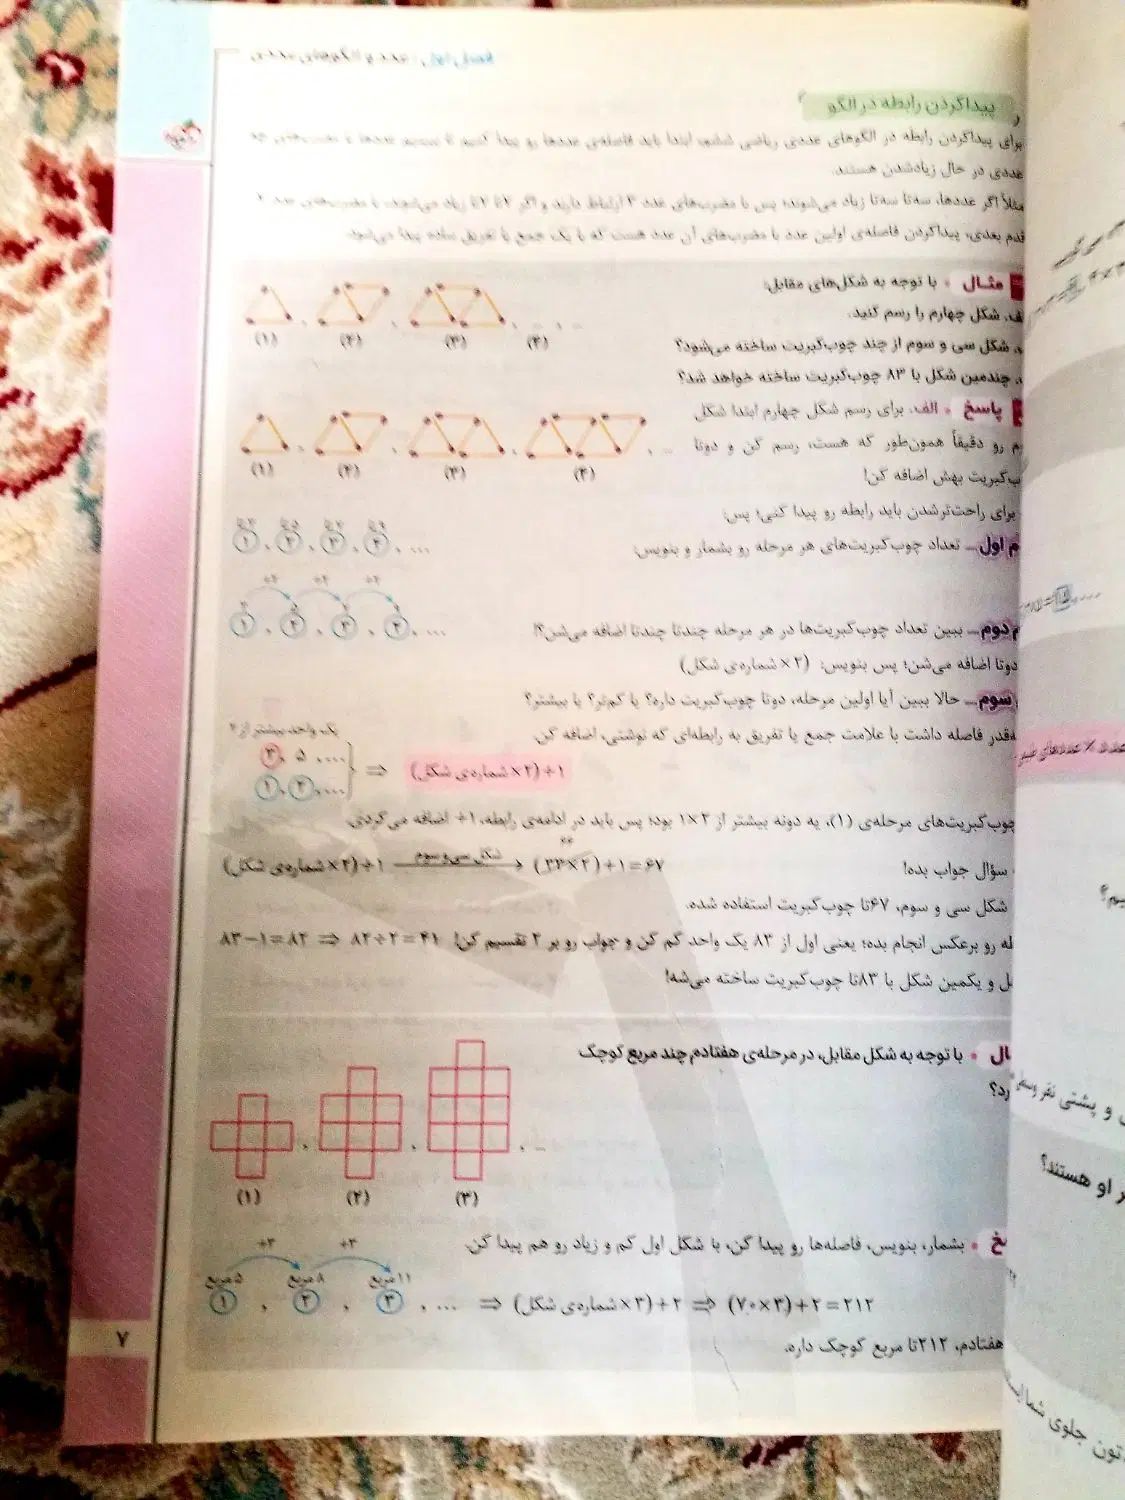 فصل اول: عدد و الگوهای عددی
پیداکردن رابطه در الگو
برای پیداکردن رابطه در الگوهای عددی ریاضی ششم، ابتدا باید فاصله‌ی عددها رو پیدا کنیم تا ببینیم عددها با مضرب‌های چه
عددی در حال زیادشدن هستند.
مثلاً اگر عددها، سه‌تا سه‌تا زیاد می‌شوند؛ پس با مضرب‌های عدد ۳ ارتباط دارند و اگر ۲تا ۲تا زیاد می‌شوند، با مضرب‌های عدد ۲
قدم بعدی، پیداکردن فاصله‌ی اولین عدد با مضرب‌های آن عدد هست که با یک جمع یا تفریق ساده پیدا می‌شود.
مثال • با توجه به شکل‌های مقابل:
الف. شکل چهارم را رسم کنید.
شکل سی و سوم از چند چوب‌کبریت ساخته می‌شود؟
چندمین شکل با ۸۳ چوب‌کبریت ساخته خواهد شد؟
(۱) (۲) (۳) (۴)
پاسخ • الف. برای رسم شکل چهارم ابتدا شکل
رو دقیقاً همون‌طور که هست، رسم کن و دوتا
چوب‌کبریت بهش اضافه کن!
(۱) (۲) (۳) (۴)
برای راحت‌ترشدن باید رابطه رو پیدا کنی؛ پس:
اول ـ تعداد چوب‌کبریت‌های هر مرحله رو بشمار و بنویس:
۳تا ۵تا ۷تا ۹تا
۱ , ۲ , ۳ , ۴ , ...
+۲ +۲ +۲
۳ ۵ ۷ ۹
۱ , ۲ , ۳ , ۴ , ...
دوم ـ ببین تعداد چوب‌کبریت‌ها در هر مرحله چندتا چندتا اضافه می‌شن؟!
دوتا اضافه می‌شن؛ پس بنویس: (۲× شماره‌ی شکل)
سوم ـ حالا ببین آیا اولین مرحله، دوتا چوب‌کبریت داره؟ یا کم‌تر؟ یا بیشتر؟
قدر فاصله داشت با علامت جمع یا تفریق به رابطه‌ای که نوشتی، اضافه کن.
یک واحد بیشتر از ۲
۳ , ۵ , ...
۱ , ۲ , ...
⇒ (۲× شماره‌ی شکل) + ۱
چوب‌کبریت‌های مرحله‌ی (۱)، یه دونه بیشتر از ۲×۱ بود؛ پس باید در ادامه‌ی رابطه، ۱+ اضافه می‌کردی.
سؤال جواب بده!
(۲× شماره‌ی شکل) + ۱ شکل سی و سوم → (۳۳×۲) + ۱ = ۶۷
۶۶
شکل سی و سوم، ۶۷تا چوب‌کبریت استفاده شده.
رو برعکس انجام بده؛ یعنی اول از ۸۳ یک واحد کم کن و جواب رو بر ۲ تقسیم کن! ۸۳ − ۱ = ۸۲ ⇒ ۸۲ ÷ ۲ = ۴۱
و یکمین شکل با ۸۳تا چوب‌کبریت ساخته می‌شه!
• با توجه به شکل مقابل، در مرحله‌ی هفتادم چند مربع کوچک
(۱) (۲) (۳)
• بشمار، بنویس، فاصله‌ها رو پیدا کن، با شکل اول کم و زیاد رو هم پیدا کن.
+۳ +۳
۵مربع ۸مربع ۱۱مربع
۱ , ۲ , ۳ , ... ⇒ (۳× شماره‌ی شکل) + ۲ ⇒ (۷۰×۳) + ۲ = ۲۱۲
هفتادم، ۲۱۲تا مربع کوچک داره.
۷
و پشتی نفر وسطی
او هستند؟
جلوی شما